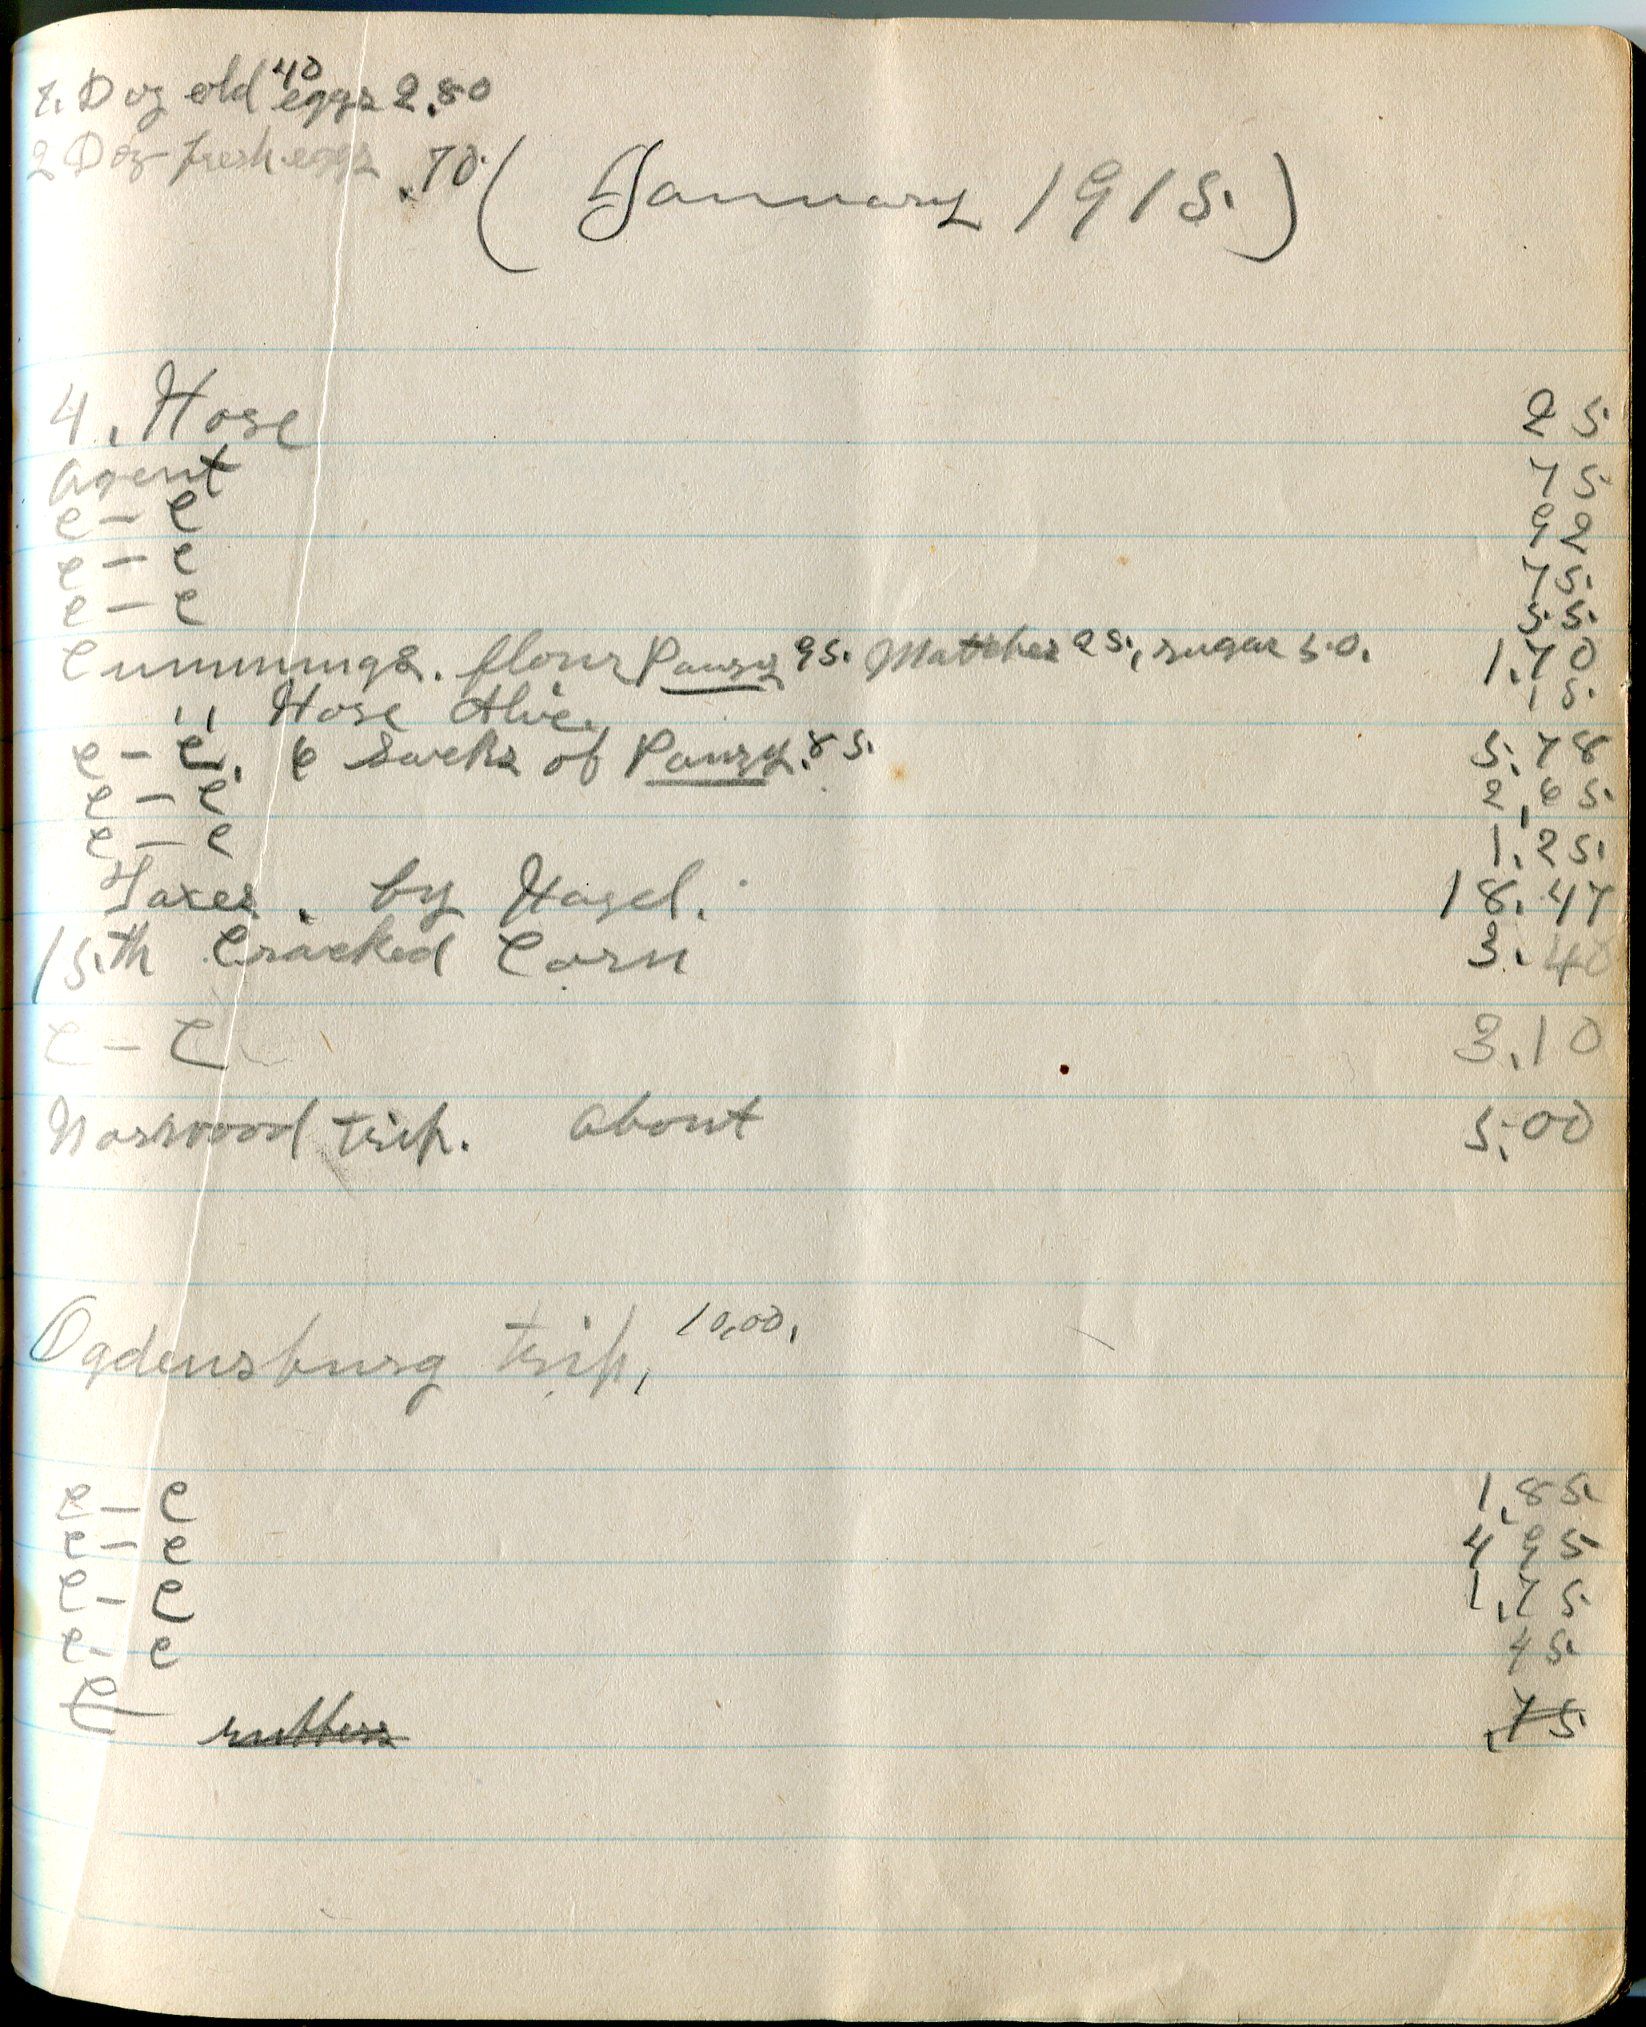 7. Doz old eggs 40 2.80
2 Doz fresh eggs .70
( January 1915. )
4. Hose 25.
Agent 75.
C - C 92
C - C 75.
C - C 55.
Cummings. flour Panzy 95. Matches 25., sugar 50. 1.70
" Hose Olive. 15.
C - C. 6 sacks of Panzy .85. 5.78
C - C 2.65.
C - C 1.25.
Taxes. by Hazel. 18.47
15.th Cracked Corn 3.40
C - C 3.10
Norwood trip. about 5.00
Ogdensburg trip, 10.00.
C - C 1.85.
C - C 4 95
C - C 1.75
C - C 45.
C rubbers .75